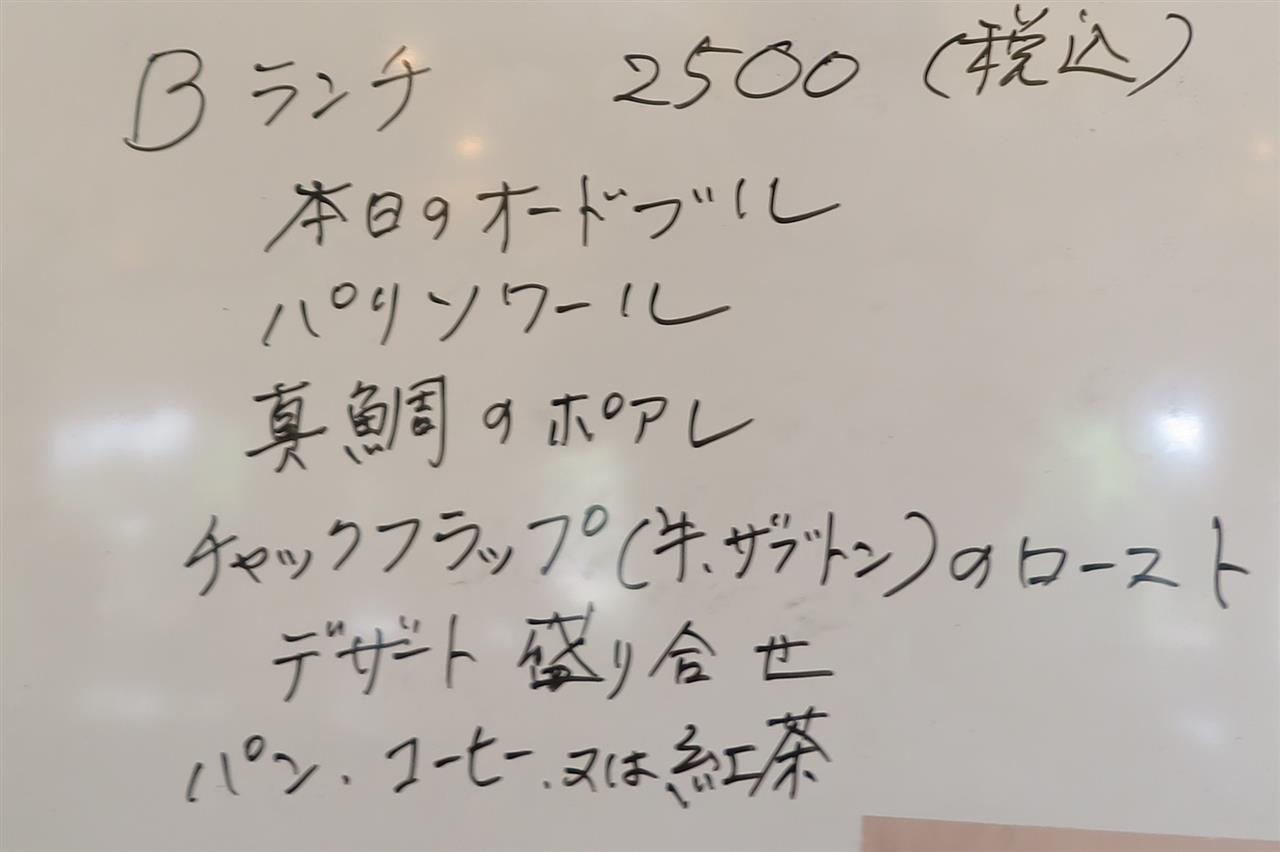 Bランチ 2500 (税込)
本日のオードブル
パリソワール
真鯛のポアレ
チャックフラップ(牛、ザブトン)のロースト
デザート盛り合せ
パン、コーヒー、又は紅茶